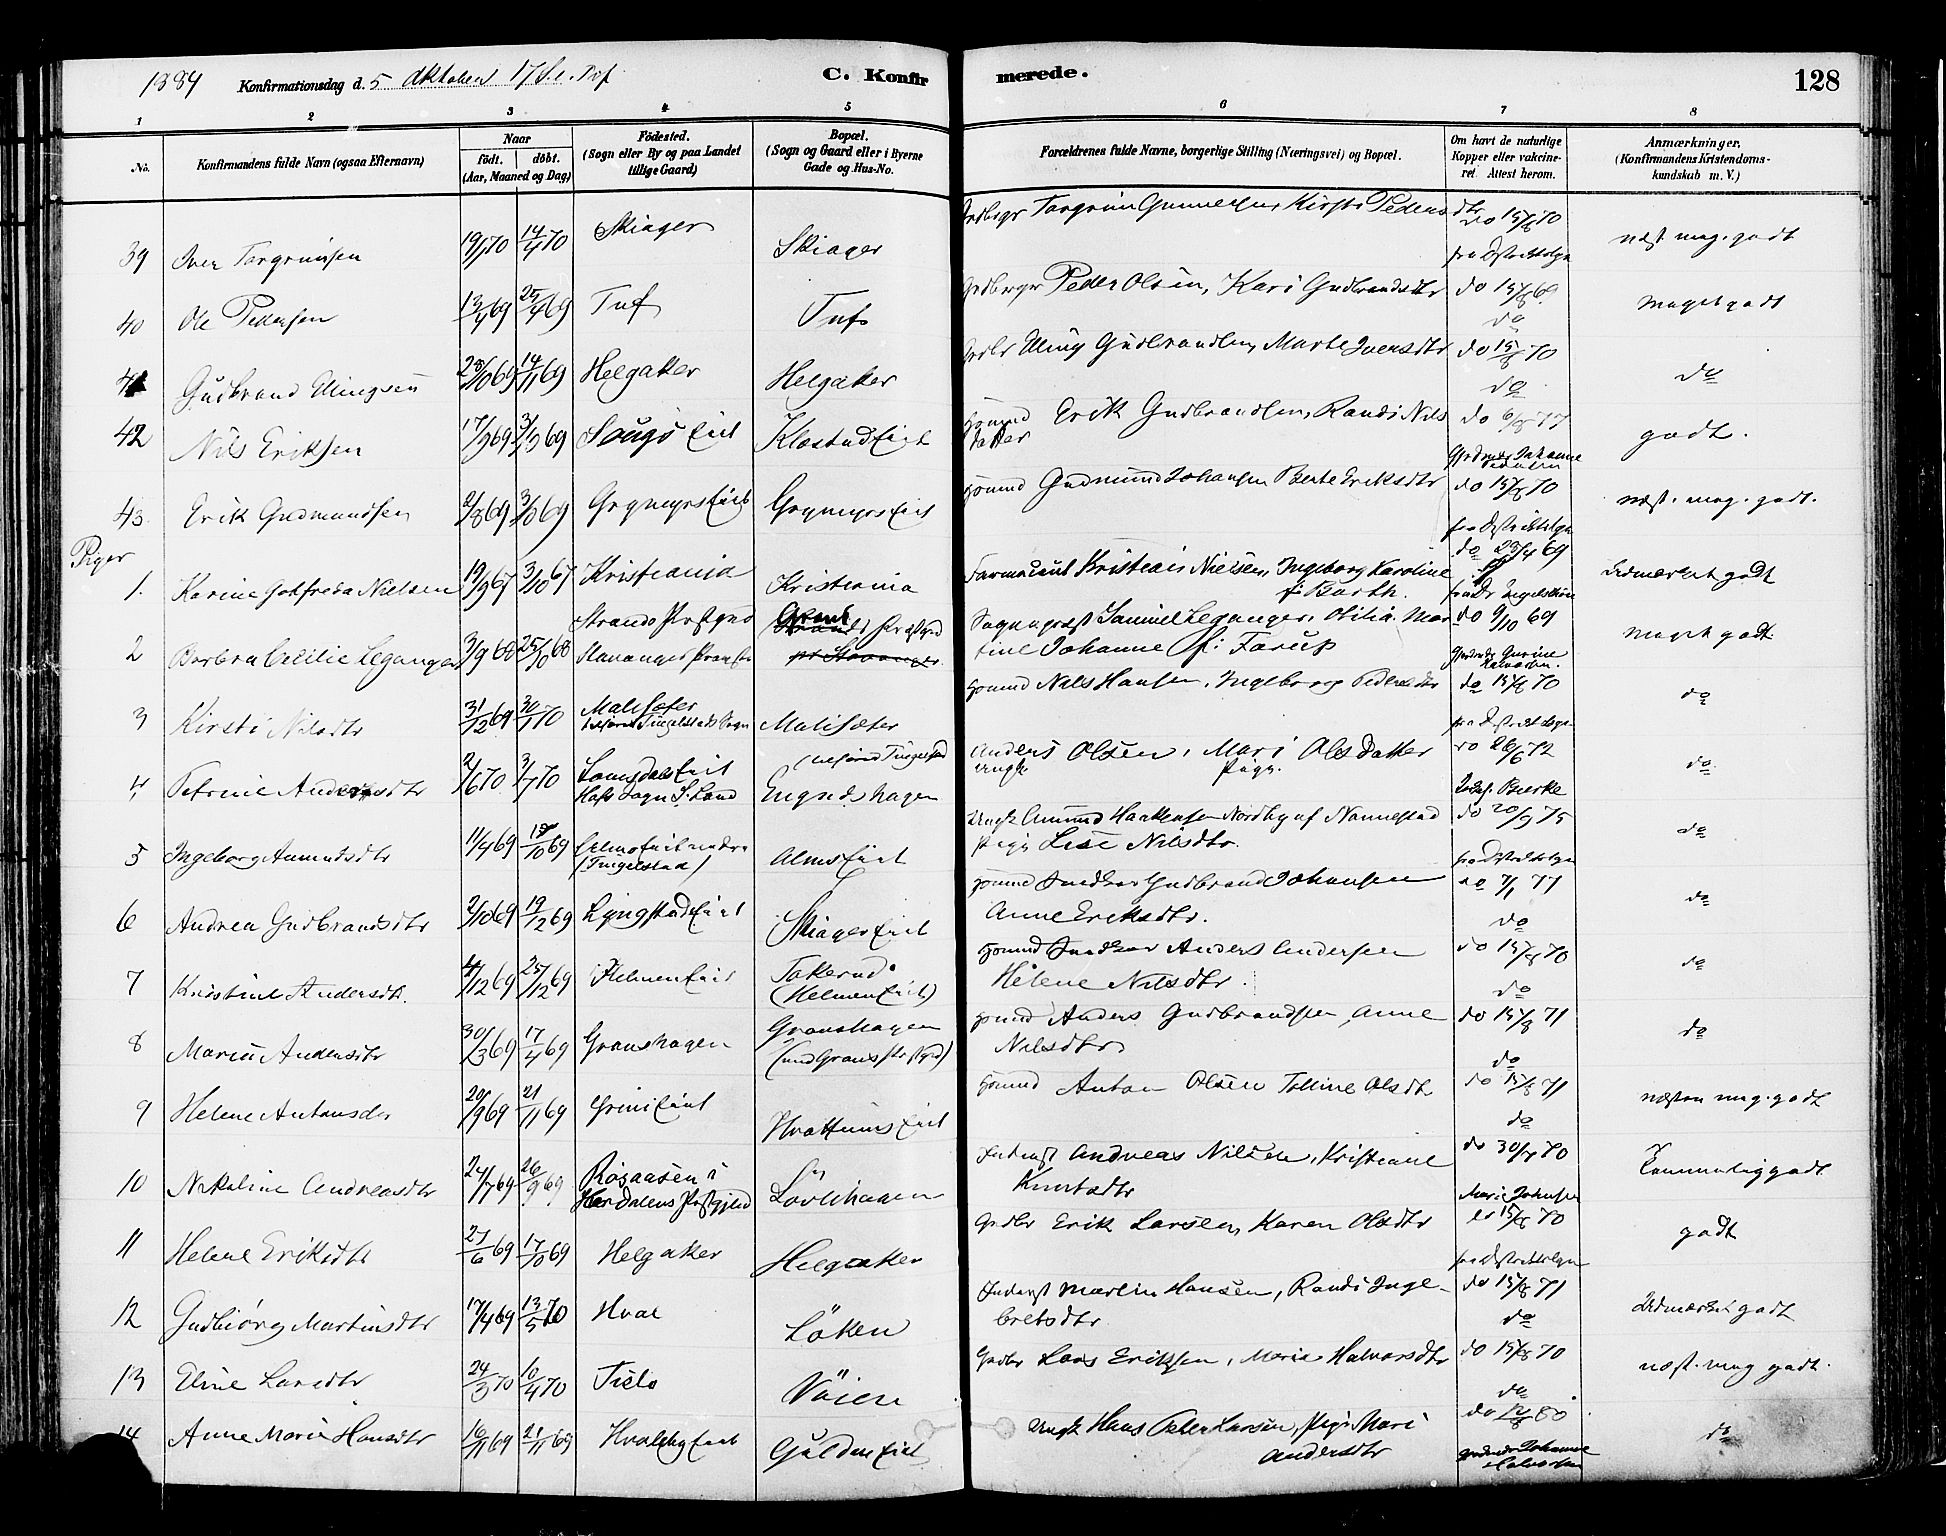 1884 Konfirmationsdag d. 5 Oktober 17 S. e. Tref
C. Konfirmerede.
128
1 2 3 4 5 6 7 8
No.
Konfirmandens fulde Navn (ogsaa Efternavn)
Naar
födt. döbt.
(Aar, Maaned og Dag)
Födested.
(Sogn eller By og paa Landet
tillige Gaard)
Bopæl.
(Sogn og Gaard eller i Byerne
Gade og Hus-No.
Forældrenes fulde Navne, borgerlige Stilling (Næringsvei) og Bopæl.
Om havt de naturlige
Kopper eller vakcine-
ret. Attest herom.
Anmærkninger.
(Konfirmandens Kristendoms-
kundskab m. V.)
39 Iver Torgrimsen 19/1 70 14/4 70 Skiager Skiager Torgrim Gunnersen, Kirsti Pedersdtr do 15/8 70 næst. meg. godt
40 Ole Pedersen 13/4 69 25/4 69 Tuf Tuf Peder Olsen, Kari Gudbrandsdtr do 15/8 69 do meget godt
41 Gudbrand Ellingsen 23/10 69 14/11 69 Helgaker Helgaker Elling Gudbrandsen, Marte Iversdtr do 15/8 70 do do
42 Nils Eriksen 17/9 69 Klæstadeiet Husmd Erik Gudbrandsen, Randi Nils
datter do 6/8 77 godt.
43 Erik Gudmundsen 2/8 69 3/10 69 Grymyrseiet Grymyrseiet Husmd Gudmund Johansen Berte Eriksdtr do 15/8 70 næst. meg. godt.
Piger
1. Karine Gotfreda Nielsen 19/9 67 3/10 67 Kristiania Kristiania Farmaceut Kristian Nielsen, Ingeborg Karoline
f. Barth. do 23/4 69 Udmærket godt
2 Barbra Cecilie Leganger 3/9 68 25/10 68 Strands Præstgjd
Stavanger Grans Præstgjd Sogneprest Samuel Leganger, Otilia Mar
tine Johanne f: Farup do 9/10 69 meget godt
3 Kirsti Nilsdtr 31/12 69 30/1 70 Malisæter Malisæter Husmd Nils Hansen, Ingeborg Pedersdtr do 15/8 70 do
4, Petrine Andersdtr 2/6 70 3/7 70 Lomsdalseiet
Hofs Sogn S. Land Engneshagen Anders Olsen, Mari Olsdatter
ungk. Pige. do 26/6 72 do
5 Ingeborg Amundsdtr 11/4 69 Almseiet
(Tingelstad) Almseiet Ungk Amund Haakensen Nordby af Nannestad
Pige Lise Nilsdtr. do 20/9 75 do
6 Andrea Gudbrandsdtr 2/10 69 19/12 69 Lyngstadeiet Skiagereiet Husmd Snedker Gudbrand Johansen
Anne Eriksdtr. do 7/1 77 do do
7 Kristine Andersdtr. 4/12 69 25/12 69 Helmeneiet Tokerud
(Helmeneiet) Husmd Snedker Anders Andersen
Helene Nilsdtr. do 15/8 70 do do
8 Marie Andersdtr 30/3 69 17/4 69 Granshagen Granshagen
(und Grans Præstgjd) Husmd Anders Gudbrandsen, Anne
Nilsdtr do 15/8 71 do do
9 Helene Antonsdtr 20/9 69 21/11 69 Grinieiet Hvattumseiet Husmd Anton Olsen Tolline Olsdt do 15/8 71 do næsten meg. godt
10 Nikoline Andreasdtr 24/7 69 26/9 69 Røisaasen i
Hurdalens Præstgjeld Lövlihagen Inderst Andreas Nilsen, Kristiane
Knutsdtr do 30/7 70 Marie Johnsen Temmelig godt
11 Helene Eriksdtr 27/6 69 17/10 69 Helgaker Helgaker Gaardbr Erik Larsen, Karen Olsdtr do 15/8 70 godt
12 Gudbjørg Martinsdtr 17/4 69 13/5 70 Hval Löken Inderst Martin Hansen, Randi Inge-
bretsdtr. do 15/8 71 do Udmærket godt
13 Eline Larsdtr 24/3 70 10/4 70 Tislo Vöien Gaardbr Lars Eriksen, Marie Halvorsdtr do 15/8 70 do næst. meg godt.
14 Anne Marie Hansdtr 16/11 69 21/11 69 Hvalebyeiet Guldeneiet Ungk Hans Peter Larsen, Pige Mari
Andersdtr do 12/8 80 do